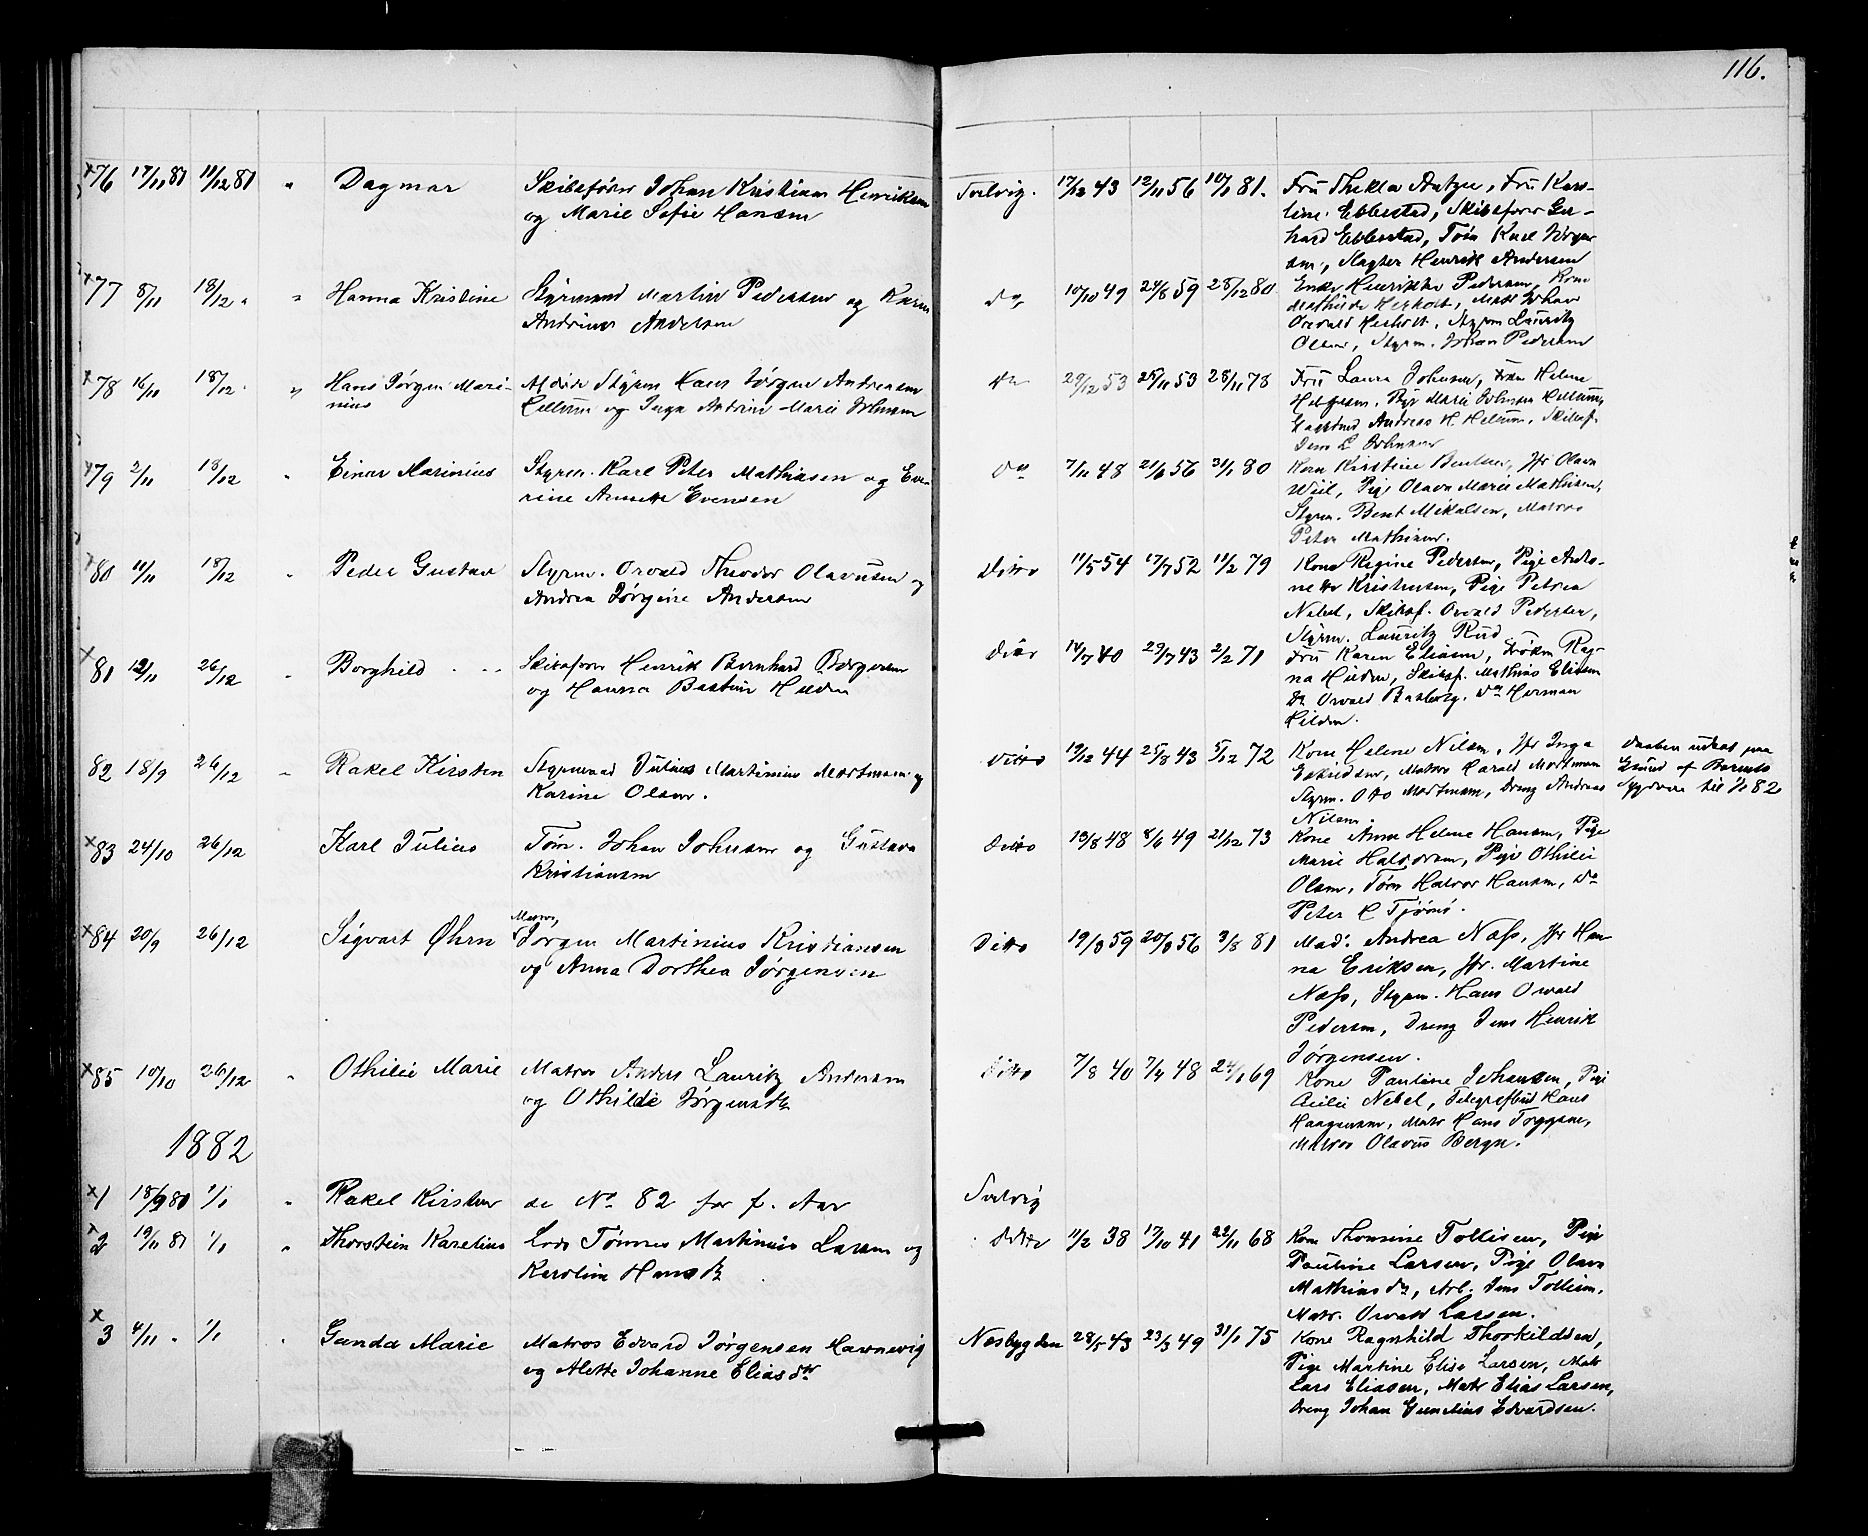 116.
76 17/11 81 11/12 81 " Dagmar Skibsfører Johan Kristian Henriksen
og Marie Sofie Hansen
17/12 43 12/11 56 10/1 81. Fru Thekla Fru Karo-
line Ebbestad, Skibsfører Ger-
hard Ebbestad, Tøm Karl Jørgen
sen, Slagter Henrik Andersen
77 8/11 18/12 " " Hanna Kristine Styrmand Martin Pedersen og Karen
Andrine Andersen
do 10/10 49 24/8 59 28/12 80 Enke Henrikke Pedersen, Kone
Mathilde Herholt, Matr Johan
Osvald Herholt, Styrm Lauritz
Olsen, Styrm. Johan Pedersen
78 16/11 18/12 " Hans Jørgen Mari-
nius
Afdøde Styrm Hans Jørgen Andreasen
Hellum og Inga Andrine Marie Johnsen
Do 29/12 53 25/11 53 28/11 78 Fru Laura Johnsen, Frøken Helene
Helgesen, Pige Marie Johnsen Hellum,
Andreas H Hellum, Skibsf.
Jens L Johnsen
79 2/11 18/12 " Einar Marinius Styrm. Karl Peter Mathisen og Eve-
rine Annette Evensen
Do 7/11 48 21/6 56 31/1 80 Kone Kirstine Bentsen, Jfr Olava
Weil, Pige Olava Marie Mathisen,
Styrm. Bent Mikalsen, Matros
Peter Mathisen.
80 11/11 18/12 " Peder Gustav Styrm. Osvald Theodor Olavusen og
Andrea Jørgine Andersen
Ditto 11/5 54 17/7 52 11/2 79 Kone Regine Pedersen, Pige Anto-
nette Kristensen, Pige Petrea
Nebel, Skibsf. Osvald Pedersen,
Styrm. Lauritz Rud
81 12/11 26/12 " Borghild Skibsfører Henrik Bernhard Børgesen
og Hanna Bastine Hilden
Ditto 14/7 40 29/7 43 2/2 71 Fru Karen Eliasen, Frøken Rag-
na Hilden, Skibsf. Mathias Eliasen
Do Osval Basberg, Do Herman
Hilden.
82 18/9 26/12 " Rakel Kirsten Styrmand Julius Martinius Mortensen og
Karine Olsen.
Ditto 19/12 44 25/8 43 5/12 72 Kone Helene Nilsen, Jfr Inga
Eskildsen, Matros Harald Mortensen
Styrm. Otto Mortensen, Dreng Andreas
Nilsen.
Daaben udsat paa
Grund af Barnets
Sygdom til 1/1 82
83 24/10 26/12 Karl Julius Tøm. Johan Johnsen og Gustava
Kristiansen
Ditto 13/8 48 8/6 49 21/12 73 Kone Anne Helene Hansen, Pige
Marie Halvorsen, Pige Othilie
Olsen, Tøm Halvor Hansen, Do
Peter C Tjømø.
84 20/9 26/12 Sigvart Øhrn Matros
Jørgen Martinius Kristiansen
og Anna Dorthea Jørgensen
Ditto 19/3 59 20/3 56 3/8 81 Mad. Andrea Næss, Jfr Han
na Eriksen, Jfr. Martine
Næss, Styrm. Hans Osvald
Pedersen, Dreng Jens Henrik
Jørgensen.
85 10/10 26/12 " Othilie Marie Matros Anders Lauritz Andersen
og Othilde Jørgensdtr
Ditto 7/8 40 7/4 48 24/1 69 Kone Pauline Johansen, Pige
Cecilie Nebel, Telegrafbud Hans
Haagensen, Matr Hans Tryggesen,
Matros Olavus Bergn.
1882
1 18/9 80 1/1 " Rakel Kirsten se No 82 for f. Aar
2 19/11 81 1/1 " Thorstein Karelius Lods Tønnes Martinius Larsen og
Karoline Hansdtr
Ditto 11/2 38 17/10 41 22/11 68 Kone Thomine Tollisen, Pige
Pauline Larsen, Pige Olava
Mathiasdtr, Arb. Jens Tollisen,
Matr. Osvald Larsen.
3 4/11 " 1/1 " Gunda Marie Matros Edvard Jørgensen Havnevig
og Alette Johanne Eliasdtr
Næsbygden 28/5 43 23/3 49 31/1 75 Kone Ragnhild Thorkildsen,
Pige Martine Elise Larsen, Matr
Lars Eliasen, Matr Elias Larsen,
Dreng Johan Gunelius Edvardsen.